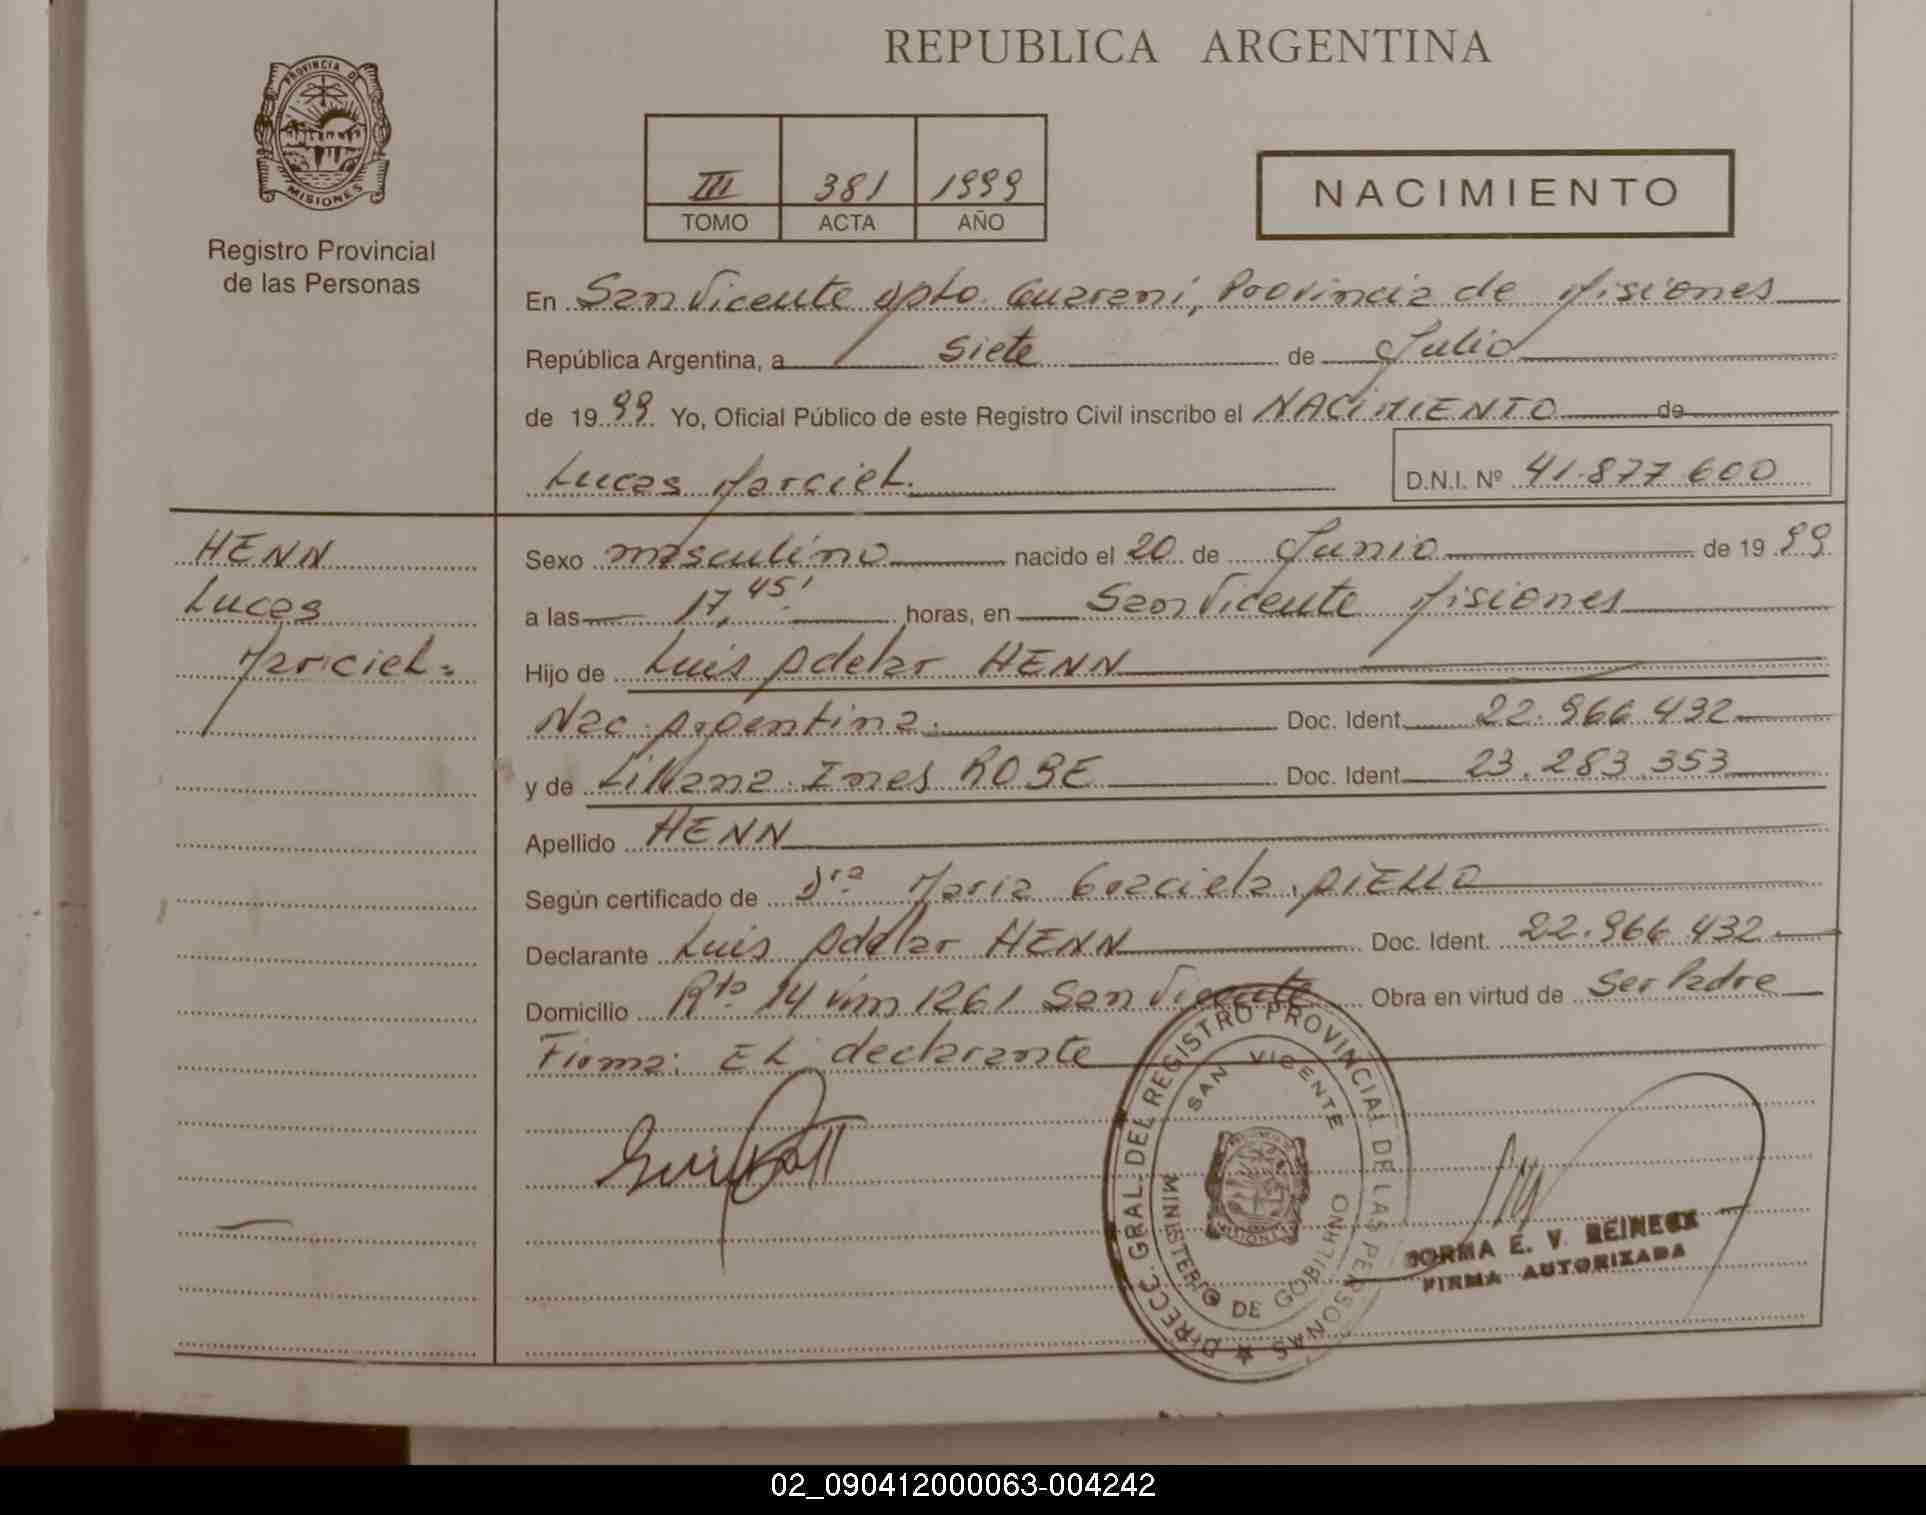 REPUBLICA ARGENTINA
PROVINCIA DE
MISIONES
Registro Provincial
de las Personas
III 381 1999
TOMO ACTA AÑO
NACIMIENTO
En San Vicente dpto. Guaraní, Provincia de Misiones
República Argentina, a siete de Julio
de 1999 Yo, Oficial Público de este Registro Civil inscribo el NACIMIENTO de
Lucas Marciel. D.N.I. Nº 41.877.600
HENN
Lucas
Marciel=
Sexo masculino nacido el 20 de Junio de 1999
a las 17,45' horas, en San Vicente Misiones
Hijo de Luis Adelar HENN
Nac. Argentina. Doc. Ident. 22.966.432
y de Liliana Ines ROBE Doc. Ident. 23.283.353
Apellido HENN
Según certificado de Dra. Maria Graciela AIELLO
Declarante Luis Adelar HENN Doc. Ident. 22.966.432
Domicilio Rta 14 km 1261 San Vicente Obra en virtud de Ser Padre
Firma: EL declarante
DIRECC. GRAL. DEL REGISTRO PROVINCIAL DE LAS PERSONAS
SAN VICENTE
MINISTERIO DE GOBIERNO
MISIONES
NORMA E. V. REINECK
FIRMA AUTORIZADA
02_090412000063-004242